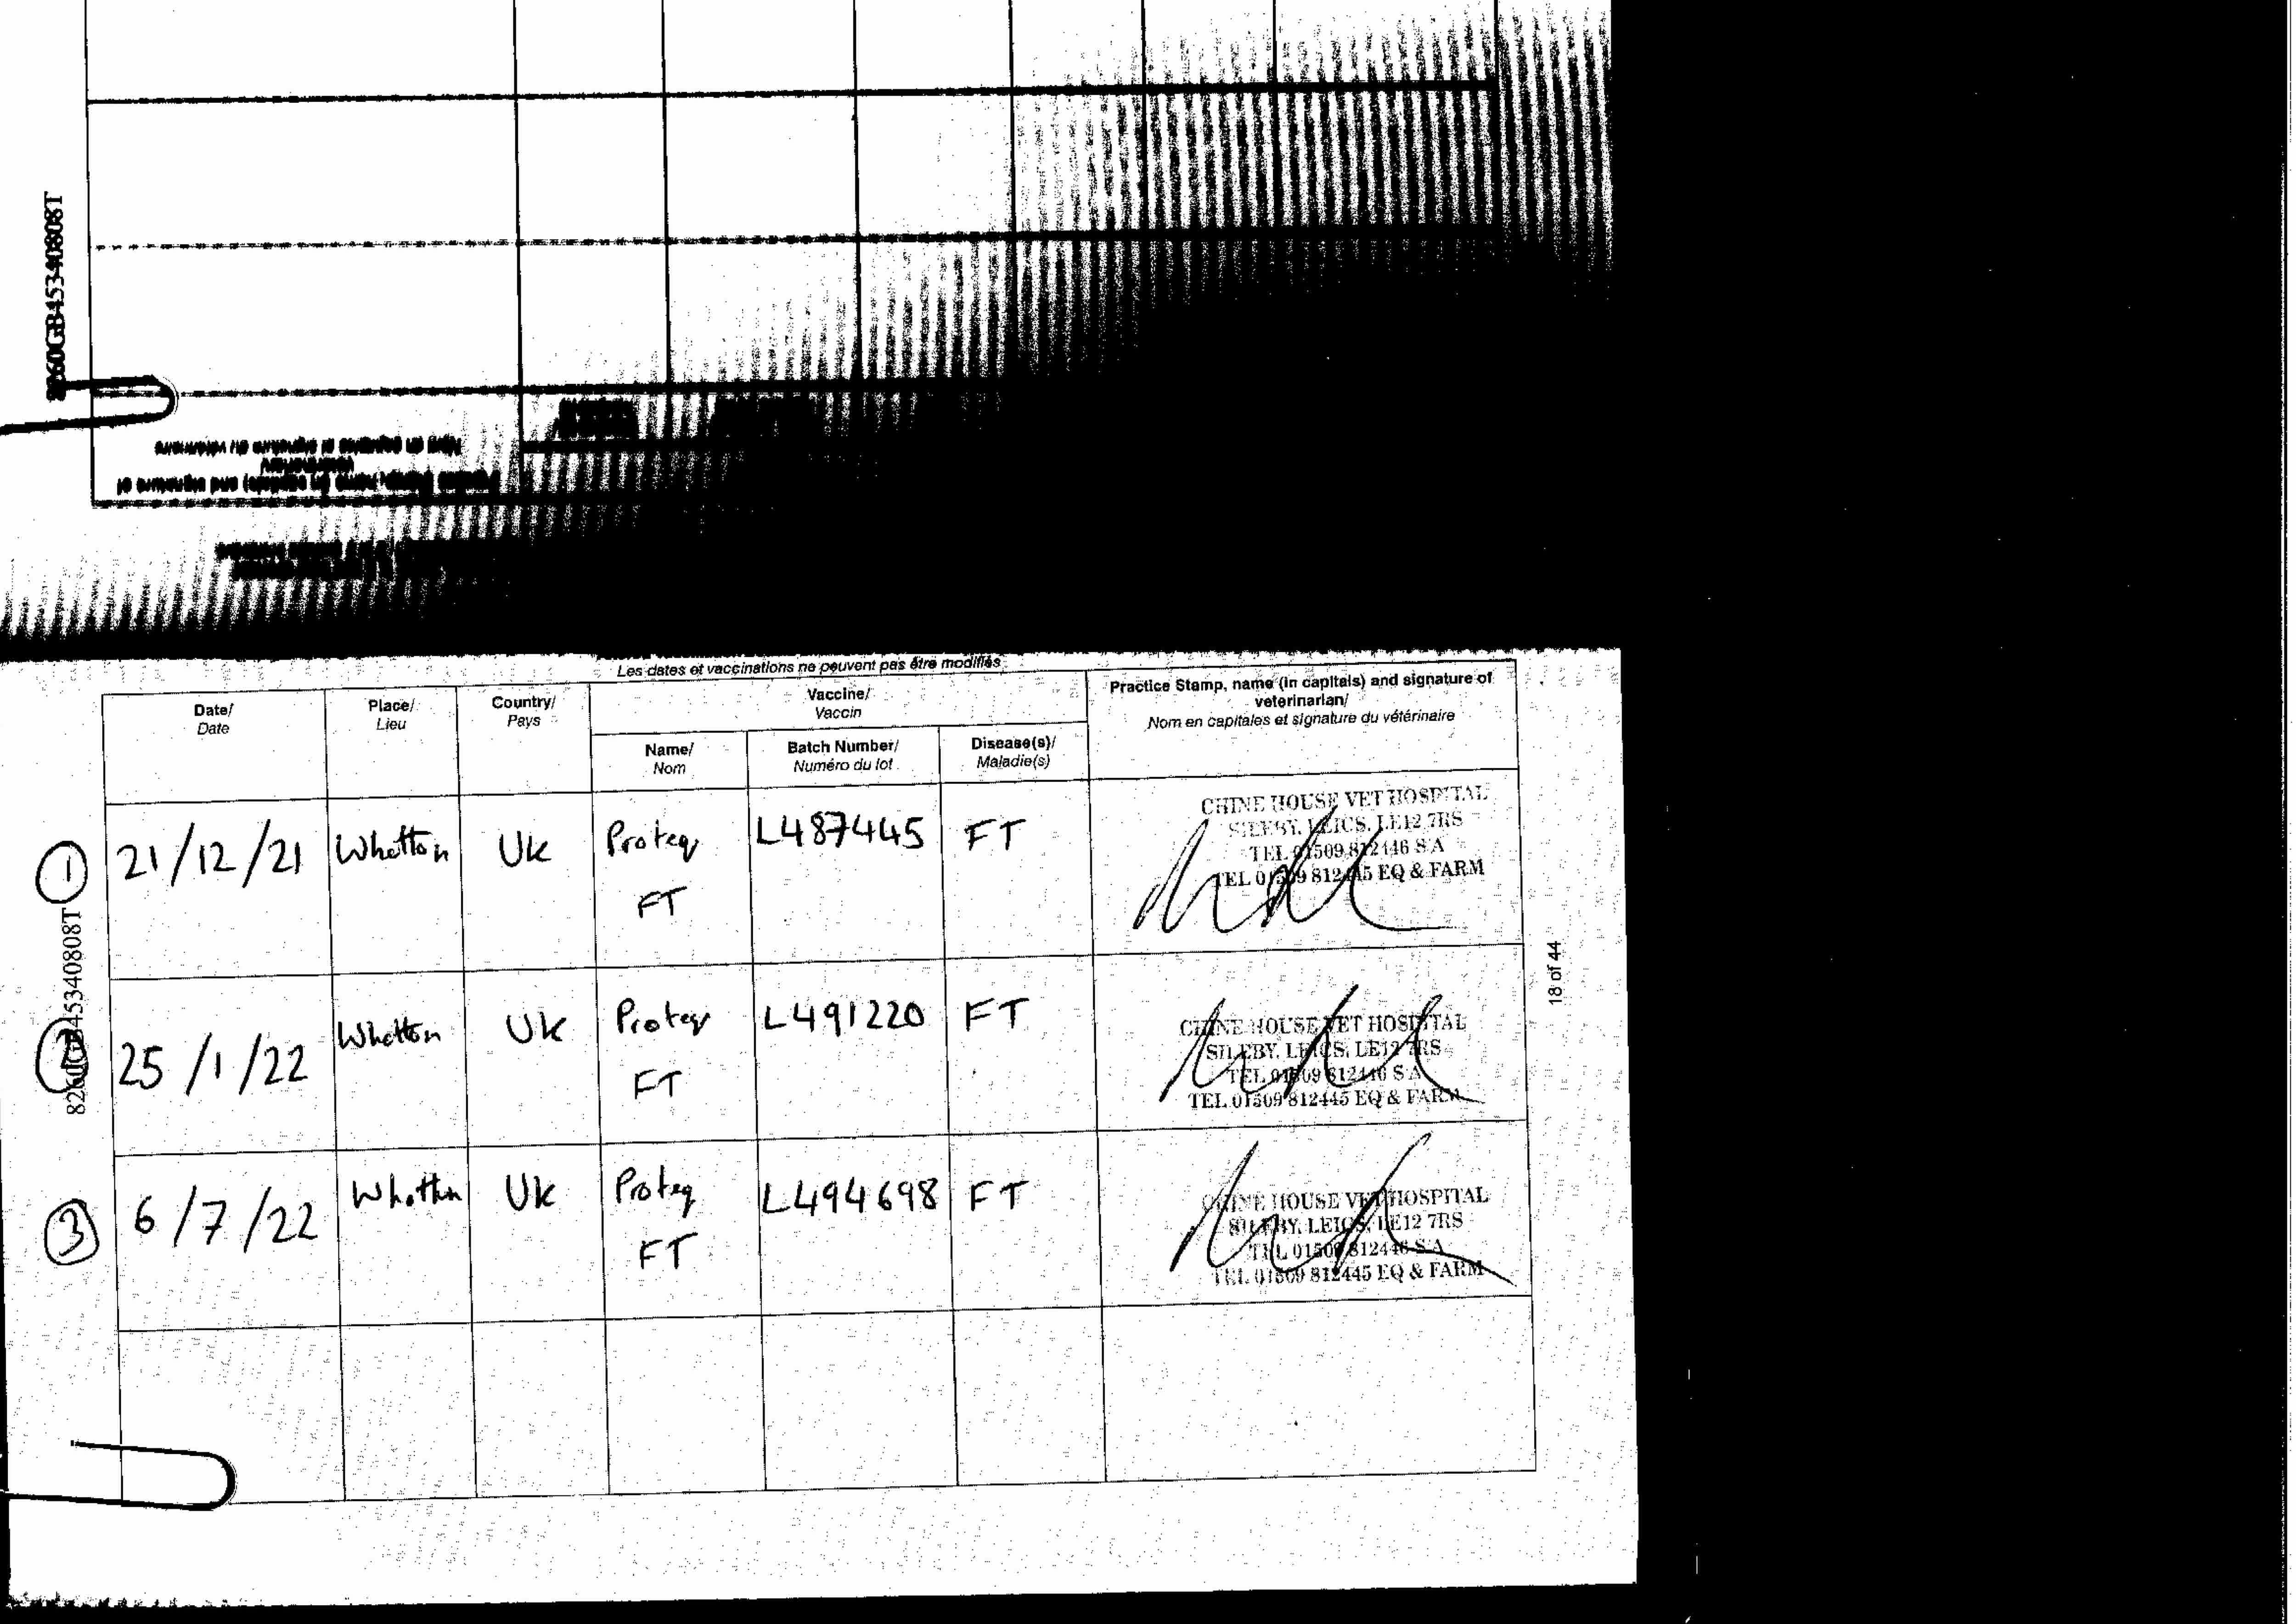 Les dates et vaccinations ne peuvent pas être modifiés
Date/
Date
Place/
Lieu
Country/
Pays
Vaccine/
Vaccin
Name/
Nom
Batch Number/
Numéro du lot
Disease(s)/
Maladie(s)
Practice Stamp, name (in capitals) and signature of
veterinarian/
Nom en capitales et signature du vétérinaire
1 21/12/21 Whatton UK Proteq L487445 FT
FT
CHINE HOUSE VET HOSPITAL
SILEBY, LEICS. LE12 7RS
TEL 01509 812446 S A
TEL 01509 812445 EQ & FARM
25/1/22 Whatton UK Proteq L491220 FT
FT
CHINE HOUSE VET HOSPITAL
SILEBY, LEICS. LE12 7RS
TEL 01509 812446 S A
TEL 01509 812445 EQ & FARM
3 6/7/22 Whatton UK Proteq L494698 FT
FT
CHINE HOUSE VET HOSPITAL
SILEBY, LEICS. LE12 7RS
TEL 01509 812446 S A
TEL 01509 812445 EQ & FARM
18 of 44